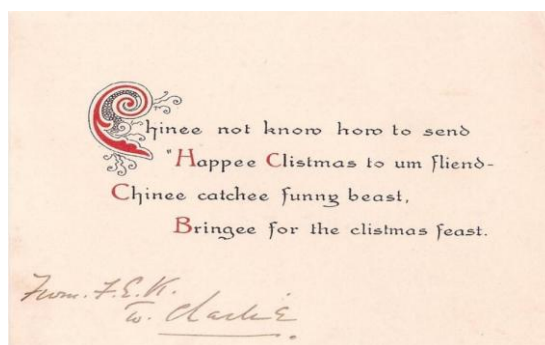 Chinee not know how to send
"Happee Clistmas to um fliend-
Chinee catchee funny beast,
Bringee for the clistmas feast.
From. F.E.K.
to. Charlie